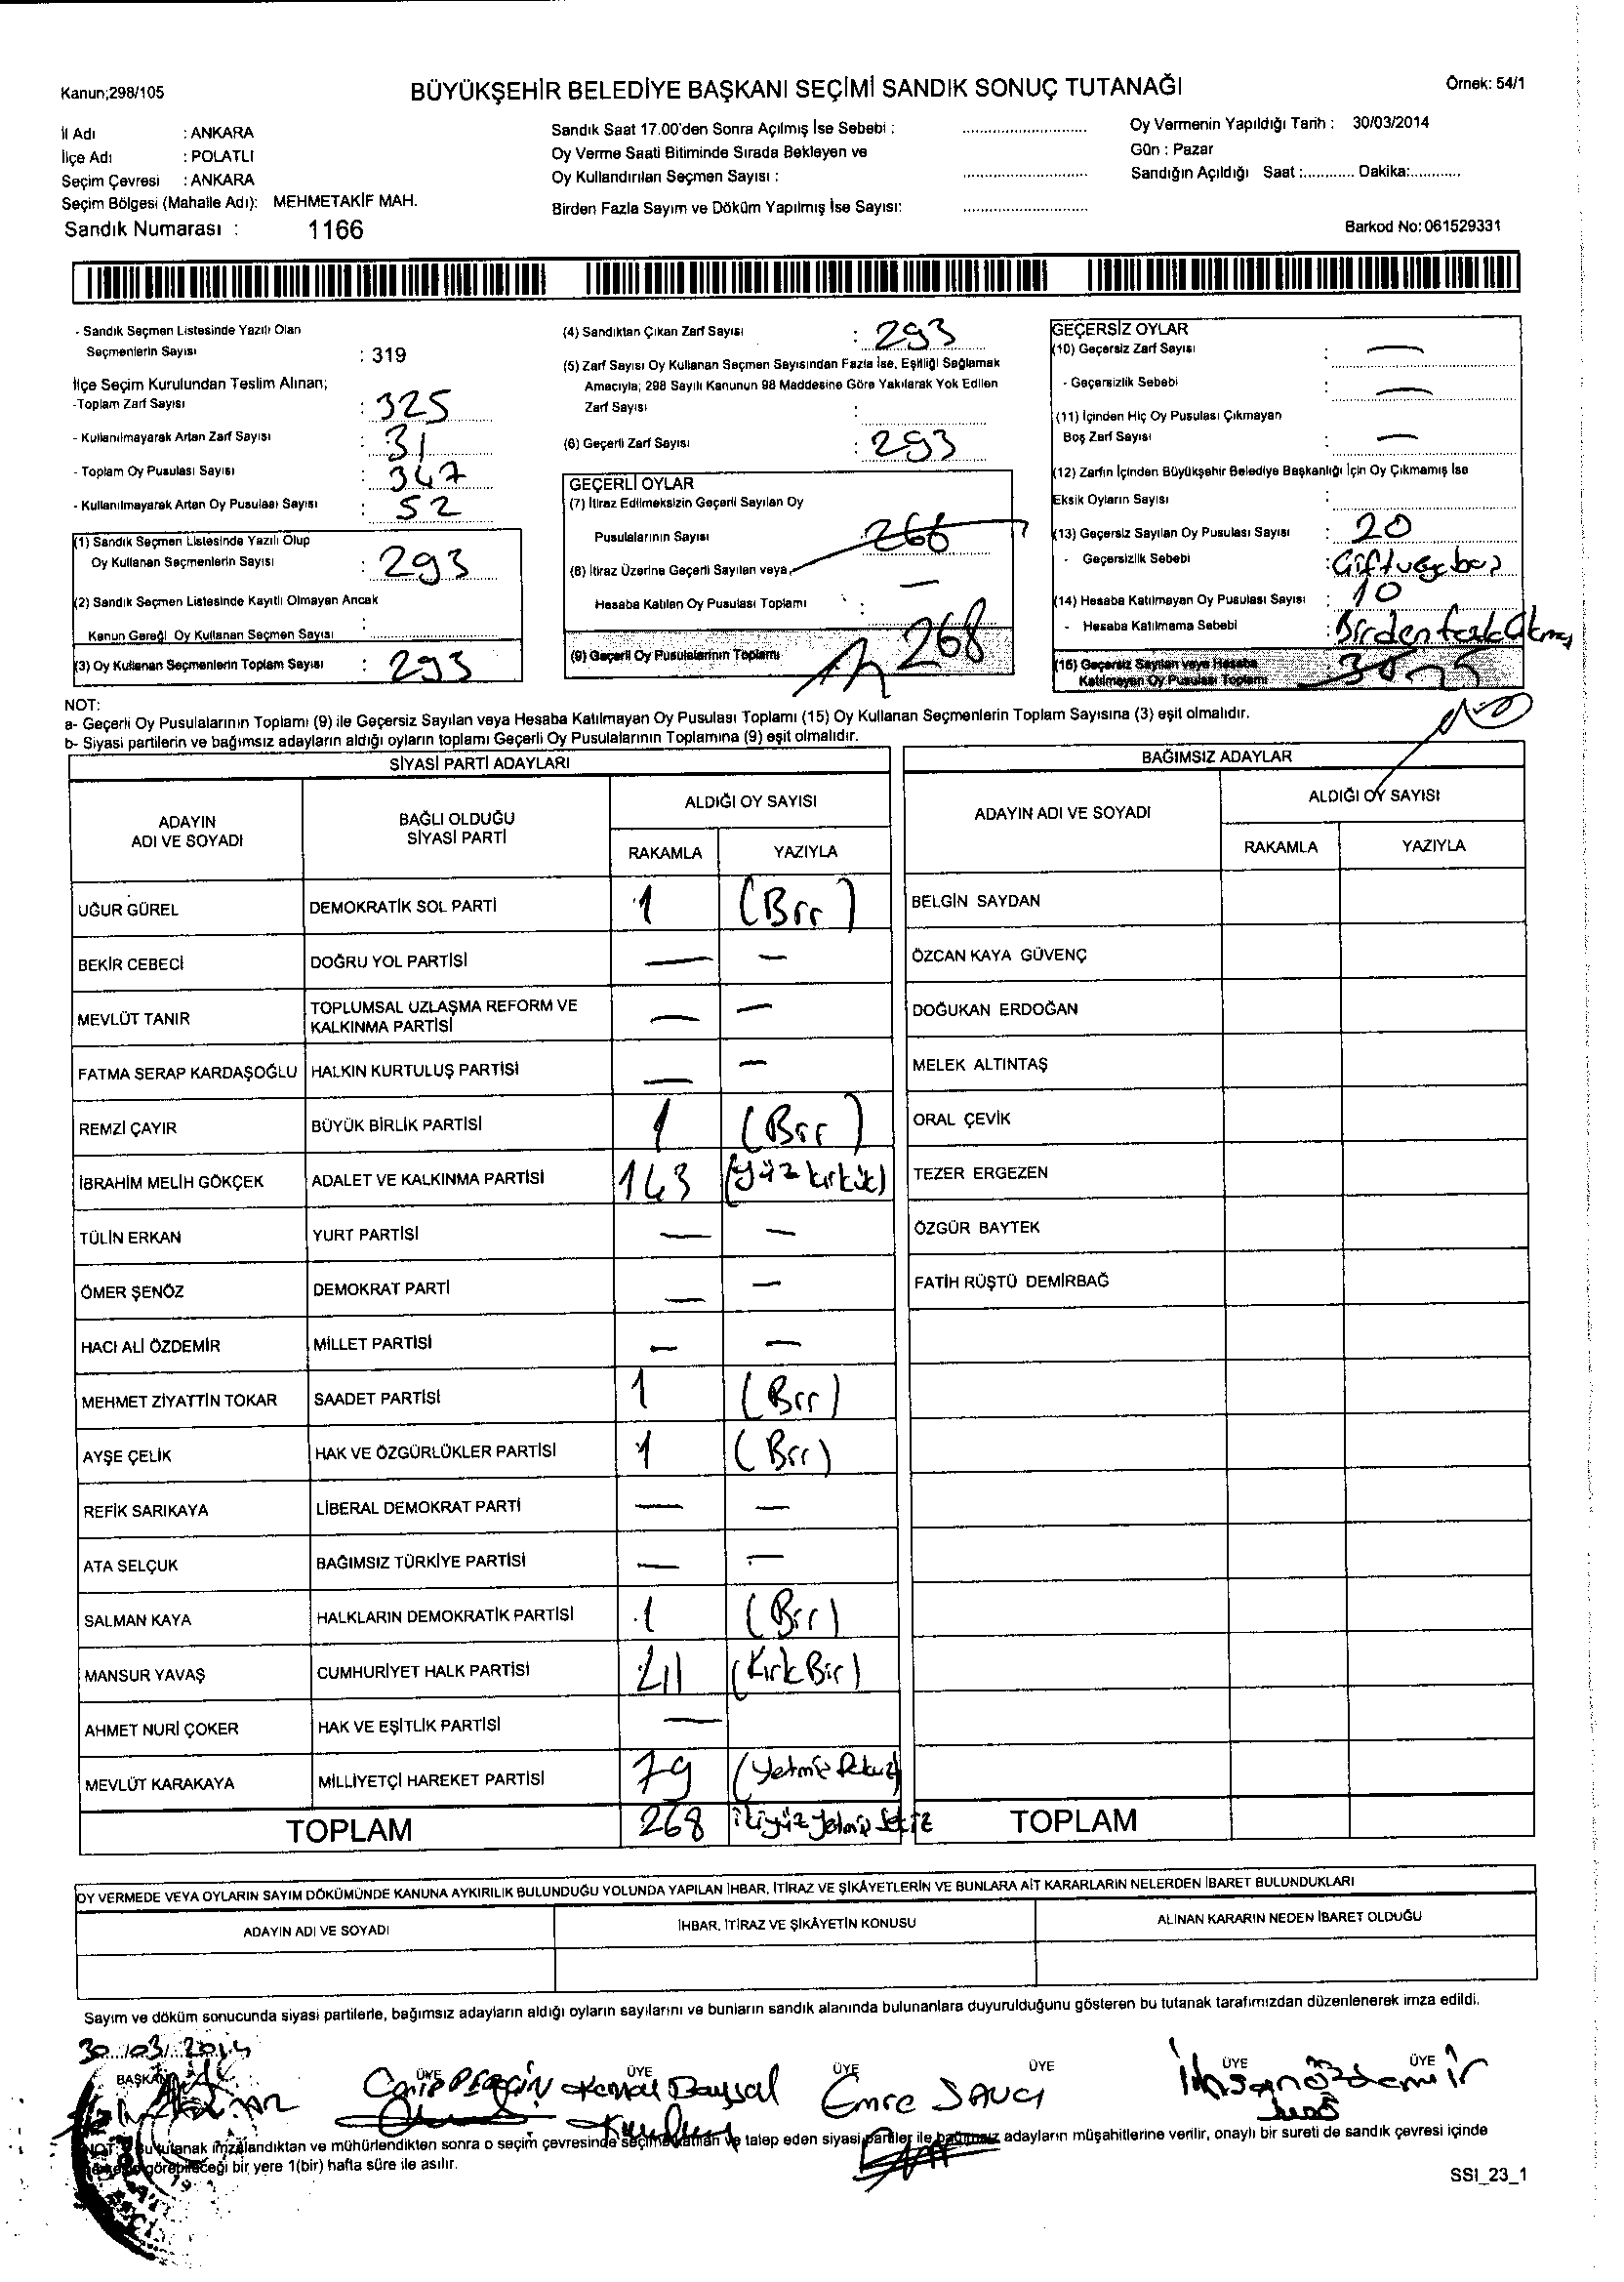 Kanun;298/105
BÜYÜKŞEHİR BELEDİYE BAŞKANI SEÇİMİ SANDIK SONUÇ TUTANAĞI
Örnek: 54/1
İl Adı : ANKARA
İlçe Adı : POLATLI
Seçim Çevresi : ANKARA
Seçim Bölgesi (Mahalle Adı): MEHMETAKİF MAH.
Sandık Numarası : 1166
Sandık Saat 17.00'den Sonra Açılmış İse Sebebi :
Oy Verme Saati Bitiminde Sırada Bekleyen ve
Oy Kullandırılan Seçmen Sayısı :
Birden Fazla Sayım ve Döküm Yapılmış İse Sayısı:
Oy Vermenin Yapıldığı Tarih : 30/03/2014
Gün : Pazar
Sandığın Açıldığı Saat :............ Dakika:............
Barkod No: 061529331
- Sandık Seçmen Listesinde Yazılı Olan
Seçmenlerin Sayısı : 319
İlçe Seçim Kurulundan Teslim Alınan;
-Toplam Zarf Sayısı : 325
- Kullanılmayarak Artan Zarf Sayısı : 31
- Toplam Oy Pusulası Sayısı : 347
- Kullanılmayarak Artan Oy Pusulası Sayısı : 52
(1) Sandık Seçmen Listesinde Yazılı Olup
Oy Kullanan Seçmenlerin Sayısı : 293
(2) Sandık Seçmen Listesinde Kayıtlı Olmayan Ancak
Kanun Gereği Oy Kullanan Seçmen Sayısı :
(3) Oy Kullanan Seçmenlerin Toplam Sayısı : 293
(4) Sandıktan Çıkan Zarf Sayısı : 293
(5) Zarf Sayısı Oy Kullanan Seçmen Sayısından Fazla İse, Eşitliği Sağlamak
Amacıyla; 298 Sayılı Kanunun 98 Maddesine Göre Yakılarak Yok Edilen
Zarf Sayısı :
(6) Geçerli Zarf Sayısı : 293
GEÇERLİ OYLAR
(7) İtiraz Edilmeksizin Geçerli Sayılan Oy
Pusulalarının Sayısı 266
(8) İtiraz Üzerine Geçerli Sayılan veya
Hesaba Katılan Oy Pusulası Toplamı : —
(9) Geçerli Oy Pusulalarının Toplamı 268
GEÇERSİZ OYLAR
(10) Geçersiz Zarf Sayısı : —
- Geçersizlik Sebebi : —
(11) İçinden Hiç Oy Pusulası Çıkmayan
Boş Zarf Sayısı : —
(12) Zarfın İçinden Büyükşehir Belediye Başkanlığı İçin Oy Çıkmamış İse
Eksik Oyların Sayısı :
(13) Geçersiz Sayılan Oy Pusulası Sayısı : 20
- Geçersizlik Sebebi :
(14) Hesaba Katılmayan Oy Pusulası Sayısı : 10
- Hesaba Katılmama Sebebi : Birden fazla
(15) Geçersiz Sayılan veya Hesaba
Katılmayan Oy Pusulası Toplamı 25
NOT:
a- Geçerli Oy Pusulalarının Toplamı (9) ile Geçersiz Sayılan veya Hesaba Katılmayan Oy Pusulası Toplamı (15) Oy Kullanan Seçmenlerin Toplam Sayısına (3) eşit olmalıdır.
b- Siyasi partilerin ve bağımsız adayların aldığı oyların toplamı Geçerli Oy Pusulalarının Toplamına (9) eşit olmalıdır.
SİYASİ PARTİ ADAYLARI
ADAYIN ADI VE SOYADI BAĞLI OLDUĞU SİYASİ PARTİ ALDIĞI OY SAYISI
RAKAMLA YAZIYLA
UĞUR GÜREL DEMOKRATİK SOL PARTİ 1 (Bir)
BEKİR CEBECİ DOĞRU YOL PARTİSİ — —
MEVLÜT TANIR TOPLUMSAL UZLAŞMA REFORM VE KALKINMA PARTİSİ — —
FATMA SERAP KARDAŞOĞLU HALKIN KURTULUŞ PARTİSİ — —
REMZİ ÇAYIR BÜYÜK BİRLİK PARTİSİ 1 (Bir)
İBRAHİM MELİH GÖKÇEK ADALET VE KALKINMA PARTİSİ 143 (yüz kırküç)
TÜLİN ERKAN YURT PARTİSİ — —
ÖMER ŞENÖZ DEMOKRAT PARTİ — —
HACI ALİ ÖZDEMİR MİLLET PARTİSİ — —
MEHMET ZİYATTİN TOKAR SAADET PARTİSİ 1 (Bir)
AYŞE ÇELİK HAK VE ÖZGÜRLÜKLER PARTİSİ 1 (Bir)
REFİK SARIKAYA LİBERAL DEMOKRAT PARTİ — —
ATA SELÇUK BAĞIMSIZ TÜRKİYE PARTİSİ — —
SALMAN KAYA HALKLARIN DEMOKRATİK PARTİSİ 1 (Bir)
MANSUR YAVAŞ CUMHURİYET HALK PARTİSİ 41 (Kırk Bir)
AHMET NURİ ÇOKER HAK VE EŞİTLİK PARTİSİ —
MEVLÜT KARAKAYA MİLLİYETÇİ HAREKET PARTİSİ 79 (Yetmiş Dokuz)
TOPLAM 268 ikiyüz yetmiş sekiz
BAĞIMSIZ ADAYLAR
ADAYIN ADI VE SOYADI ALDIĞI OY SAYISI
RAKAMLA YAZIYLA
BELGİN SAYDAN
ÖZCAN KAYA GÜVENÇ
DOĞUKAN ERDOĞAN
MELEK ALTINTAŞ
ORAL ÇEVİK
TEZER ERGEZEN
ÖZGÜR BAYTEK
FATİH RÜŞTÜ DEMİRBAĞ
TOPLAM
OY VERMEDE VEYA OYLARIN SAYIM DÖKÜMÜNDE KANUNA AYKIRILIK BULUNDUĞU YOLUNDA YAPILAN İHBAR, İTİRAZ VE ŞİKÂYETLERİN VE BUNLARA AİT KARARLARIN NELERDEN İBARET BULUNDUKLARI
ADAYIN ADI VE SOYADI İHBAR, İTİRAZ VE ŞİKÂYETİN KONUSU ALINAN KARARIN NEDEN İBARET OLDUĞU
Sayım ve döküm sonucunda siyasi partilerle, bağımsız adayların aldığı oyların sayılarını ve bunların sandık alanında bulunanlara duyurulduğunu gösteren bu tutanak tarafımızdan düzenlenerek imza edildi.
30/03/2014
BAŞKAN ÜYE ÜYE ÜYE ÜYE ÜYE ÜYE
Kemal Baysal Emre SAVCI İhsan Özdemir
NOT: Bu tutanak imzalandıktan ve mühürlendikten sonra o seçim çevresinde seçime katılan ve talep eden siyasi partiler ile bağımsız adayların müşahitlerine verilir, onaylı bir sureti de sandık çevresi içinde
görebileceği bir yere 1(bir) hafta süre ile asılır.
SSI_23_1